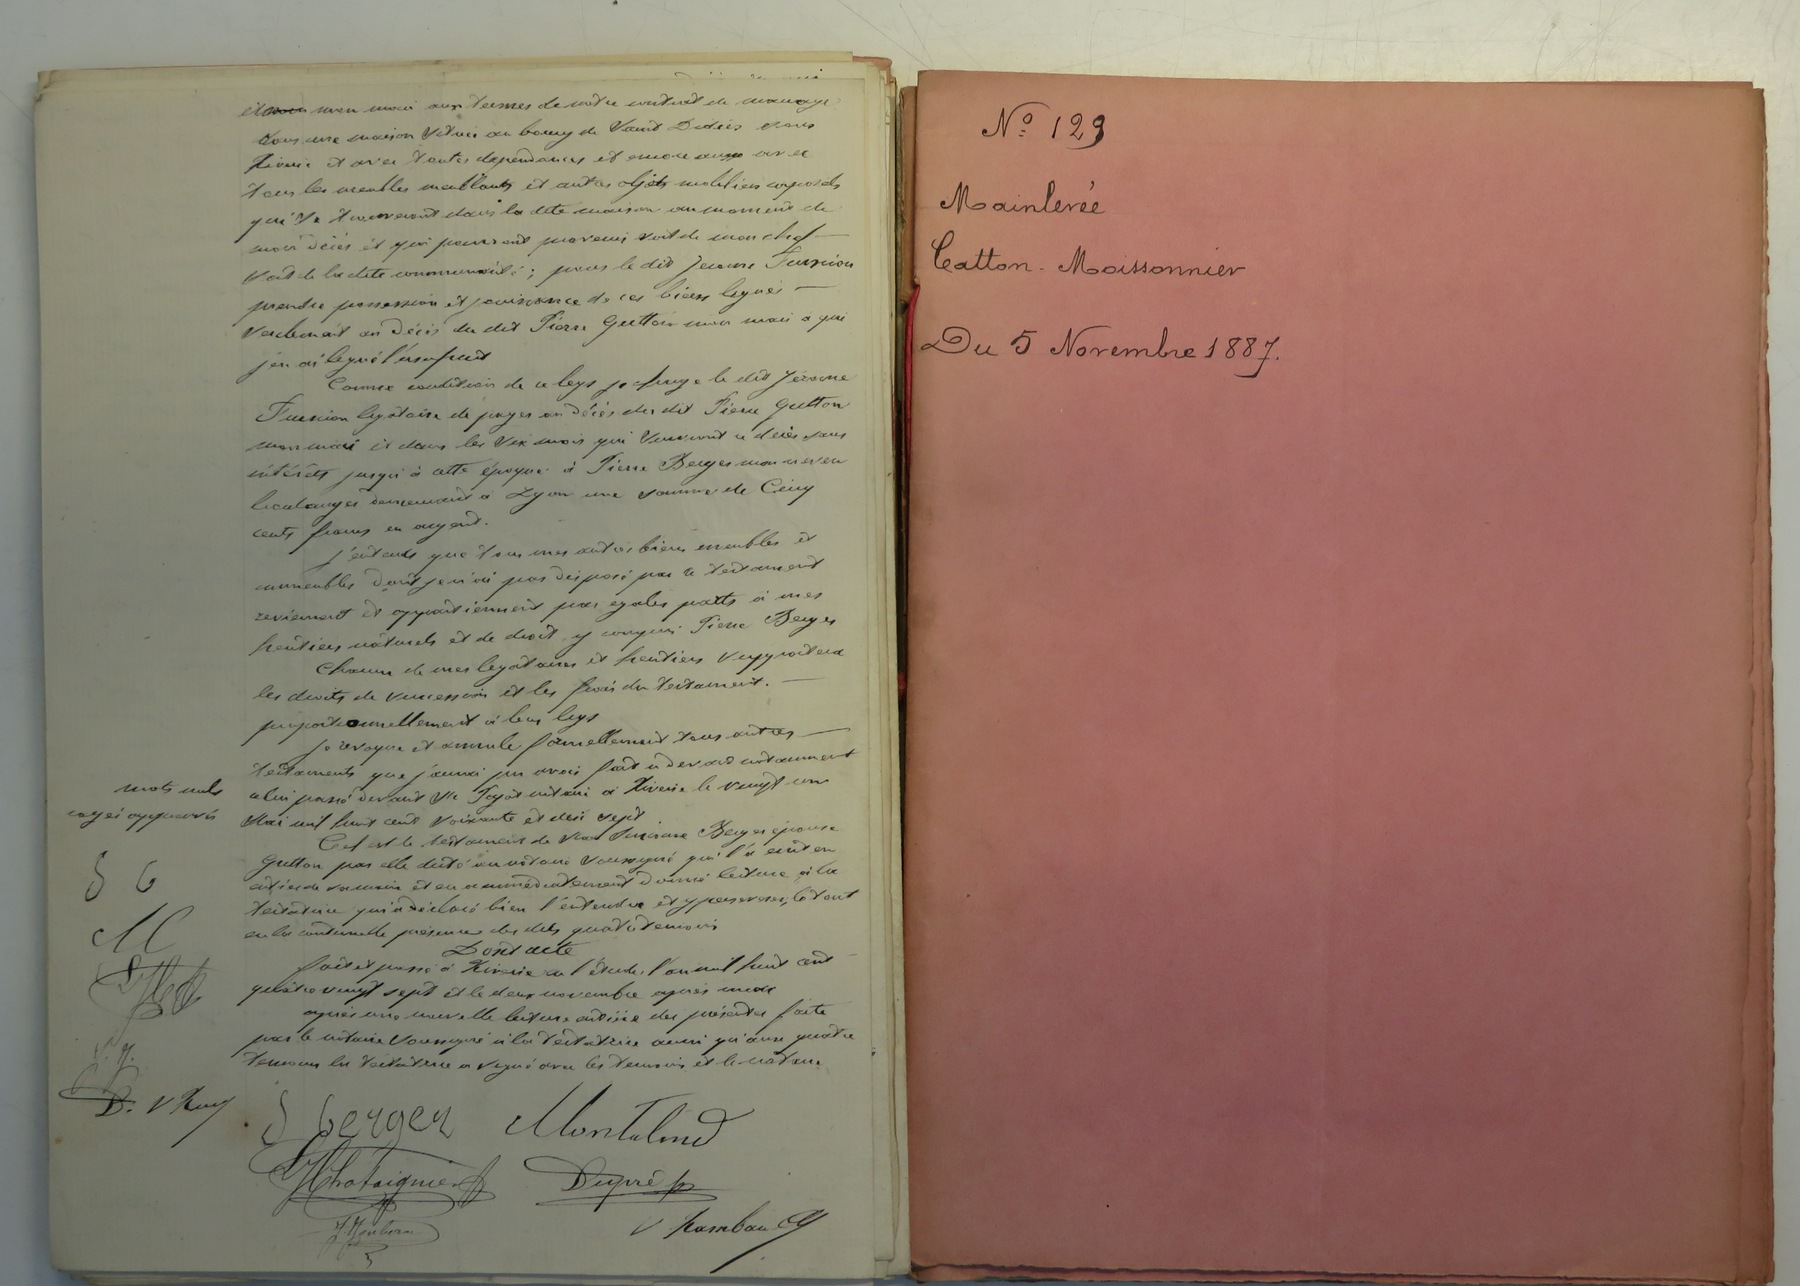 mon mari aux termes de notre contrat de mariage
dans une maison située au bourg de Saint Didier sous
Riverie et avec toutes dépendances et encore avec
tous les meubles meublants et autres objets mobiliers corporels
qui se trouveront dans la dite maison au moment de
mon décès et qui pourront provenir soit de mon chef
soit de la dite communauté ; pour le dit Jérome
prendre possession et jouissance de ces biens légués
seulement au décès du dit Pierre Gutton mon mari à qui
j'en ai légué l'usufruit
Comme condition de ce legs je charge le dit Jérome
légataire de payer au décès du dit Pierre Gutton
mon mari et dans les six mois qui suivront ce décès sans
intérêts jusqu'à cette époque à Pierre Berger mon neveu
boulanger demeurant à Lyon une somme de Cinq
cents francs en argent.
J'entends que tous mes autres biens meubles et
immeubles dont je n'ai pas disposé par ce testament
reviennent et appartiennent par égales parts à mes
héritiers naturels et de droit, y compris Pierre Berger
Chacun de mes légataires et héritiers supportera
les droits de succession et les frais du testament.
proportionnellement à leur legs
Je révoque et annule formellement tous autres
testaments que j'aurai pu avoir fait notamment
celui passé devant Me notaire à Riverie le vingt un
Mai mil huit cent soixante et dix sept
Tel est le testament de Berger épouse
Gutton par elle dicté au notaire soussigné qui l'a écrit en
entier de sa main et en a immédiatement donné lecture à la
testatrice qui a déclaré bien l'entendre et y persévérer, le tout
en la continuelle présence des dits quatre témoins
Dont acte
fait et passé à Riverie en l'étude, l'an mil huit cent
quatre vingt sept et le deux novembre après midi
après une nouvelle lecture entière des présentes faite
par le notaire soussigné à la testatrice ainsi qu'aux quatre
témoins la testatrice a signé avec les témoins et le notaire
mots nuls
rayés approuvés
S B
M
D. V Ramy
S berger Montaland
Chataignier Dupré
V Rambaud
No 129
Mainlevée
Catton - Moissonnier
Du 5 Novembre 1887.